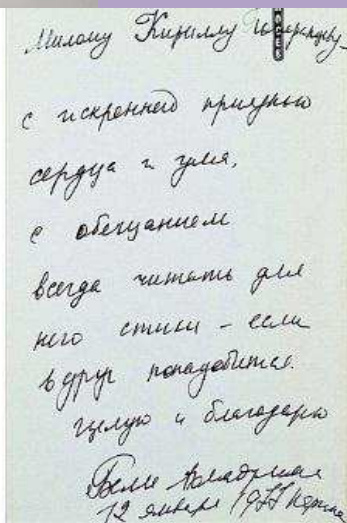 Милому Кириллу
с искренней приязнью
сердца и ума,
с обещанием
всегда читать для
него стихи – если
вдруг понадобится.
Целую и благодарю
Белла Ахмадулина
12 января 1977